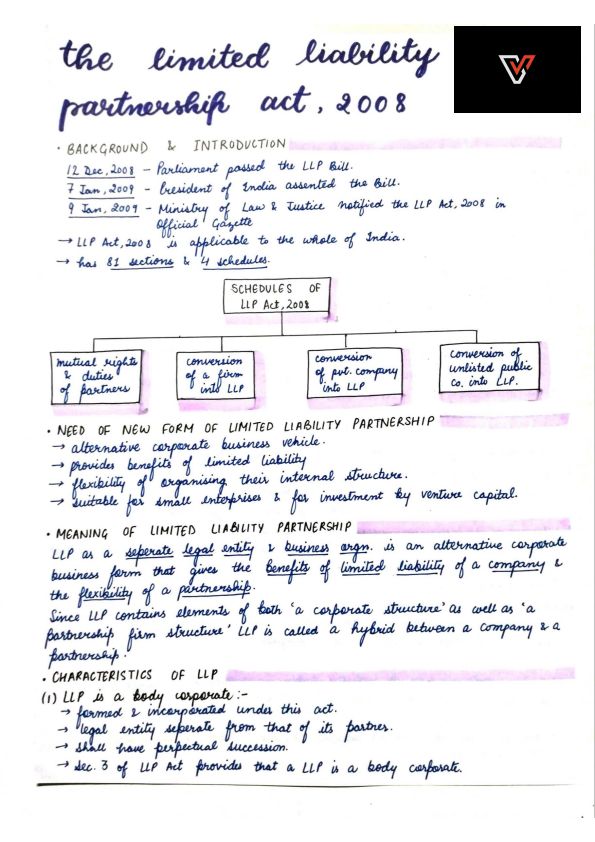 the limited liability
partnership act, 2008
· BACKGROUND & INTRODUCTION
12 Dec, 2008 – Parliament passed the LLP Bill.
7 Jan, 2009 – President of India assented the Bill.
9 Jan, 2009 – Ministry of Law & Justice notified the LLP Act, 2008 in
Official Gazette
→ LLP Act, 2008 is applicable to the whole of India.
→ has 81 sections & 4 schedules.
SCHEDULES OF
LLP Act, 2008
mutual rights
& duties
of partners
conversion
of a firm
into LLP
conversion
of pvt. company
into LLP
conversion of
unlisted public
Co. into LLP.
· NEED OF NEW FORM OF LIMITED LIABILITY PARTNERSHIP
→ alternative corporate business vehicle.
→ provides benefits of limited liability
→ flexibility of organising their internal structure.
→ suitable for small enterprises & for investment by venture capital.
· MEANING OF LIMITED LIABILITY PARTNERSHIP
LLP as a seperate legal entity & business orgn. is an alternative corporate
business form that gives the benefits of limited liability of a company &
the flexibility of a partnership.
Since LLP contains elements of both 'a corporate structure' as well as 'a
partnership firm structure' LLP is called a hybrid between a company & a
partnership.
· CHARACTERISTICS OF LLP
(1) LLP is a body corporate :-
→ formed & incorporated under this act.
→ legal entity seperate from that of its partner.
→ shall have perpectual succession.
→ Sec. 3 of LLP Act provides that a LLP is a body corporate.